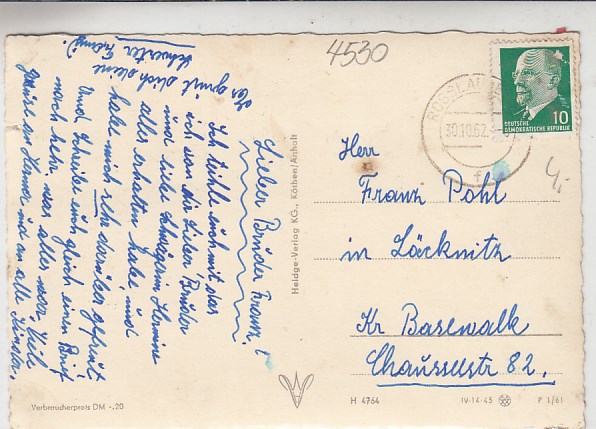 Lieber Bruder Franz!
Ich teihle euch mit das
ich von dir Lieber Bruder
und liebe Schwägerin Hermine
alles erhalten habe, und
habe mich sehr darüber gefreut
Und Schreibe euch gleich einen Brief
noch sehr was alles war. Viele
Grüsse an Hermine und an alle Kinder.
Es grüsst dich deine
Schwester
4530
ROSSLAU
30.10.62
DEUTSCHE
DEMOKRATISCHE REPUBLIK
10
4,-
Herr
Franz Pohl
in Läcknitz
Kr Basewalk
Chausseestr 82.
Heldge-Verlag KG., Köthen/Anhalt
Verbraucherpreis DM -,20
H 4764
IV-14-45
P 1/61